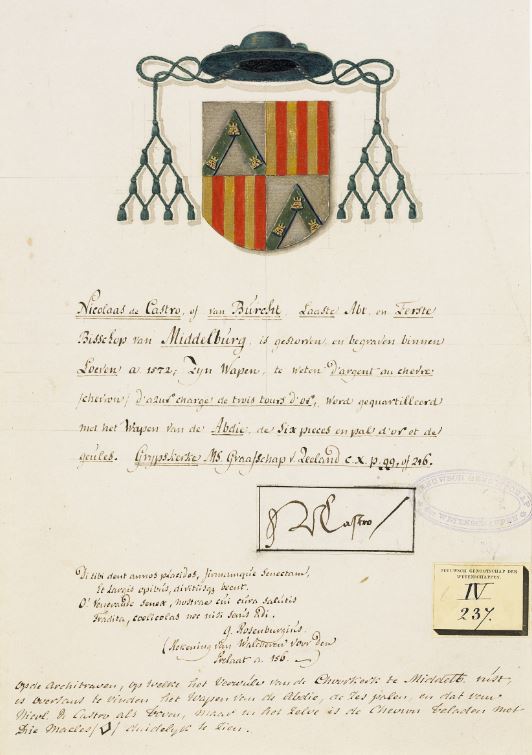 Nicolaas de Castro, of van Burcht, Laaste Abt, en Eerste
Bisschop van Middelburg, is gestorven en begraven binnen
Loeven a 1572; Zyn Wapen, te weten d'argent au chevre
/chevron/ d'azur chargé de trois tours d'or, werd gequartilleerd
met het Wapen van de Abdie, de six pieces en pal d'or et de
geules. Grypskerke MS. Graafschap v. Zeeland c. x. p. 99, of 246.
N Castro
ZEEUWSCH GENOOTSCHAP DER
WETENSCHAPPEN
ZEEUWSCH GENOOTSCHAP DER
WETENSCHAPPEN.
IV
237.
Di tibi dent annos placidos, firmamque senectam,
Et largis opibus, divitiisque beent.
O! Venerande senex, nostrae cui cura salutis
Tradita, coelicolas nec nisi serus adi.
G. Rosenburgius.
(Rekening van Walcheren voor den
Prelaat a. 156
Op de Architraven, op welke het Verwulf van de Choorkerke te Middelb. rust,
is overlans te vinden het Wapen van de Abdie, de zes palen, en dat van
Nicol. de Castro als boven, maar in het zelve is de Chevron beladen met
drie Macles / / duidelyk te zien.